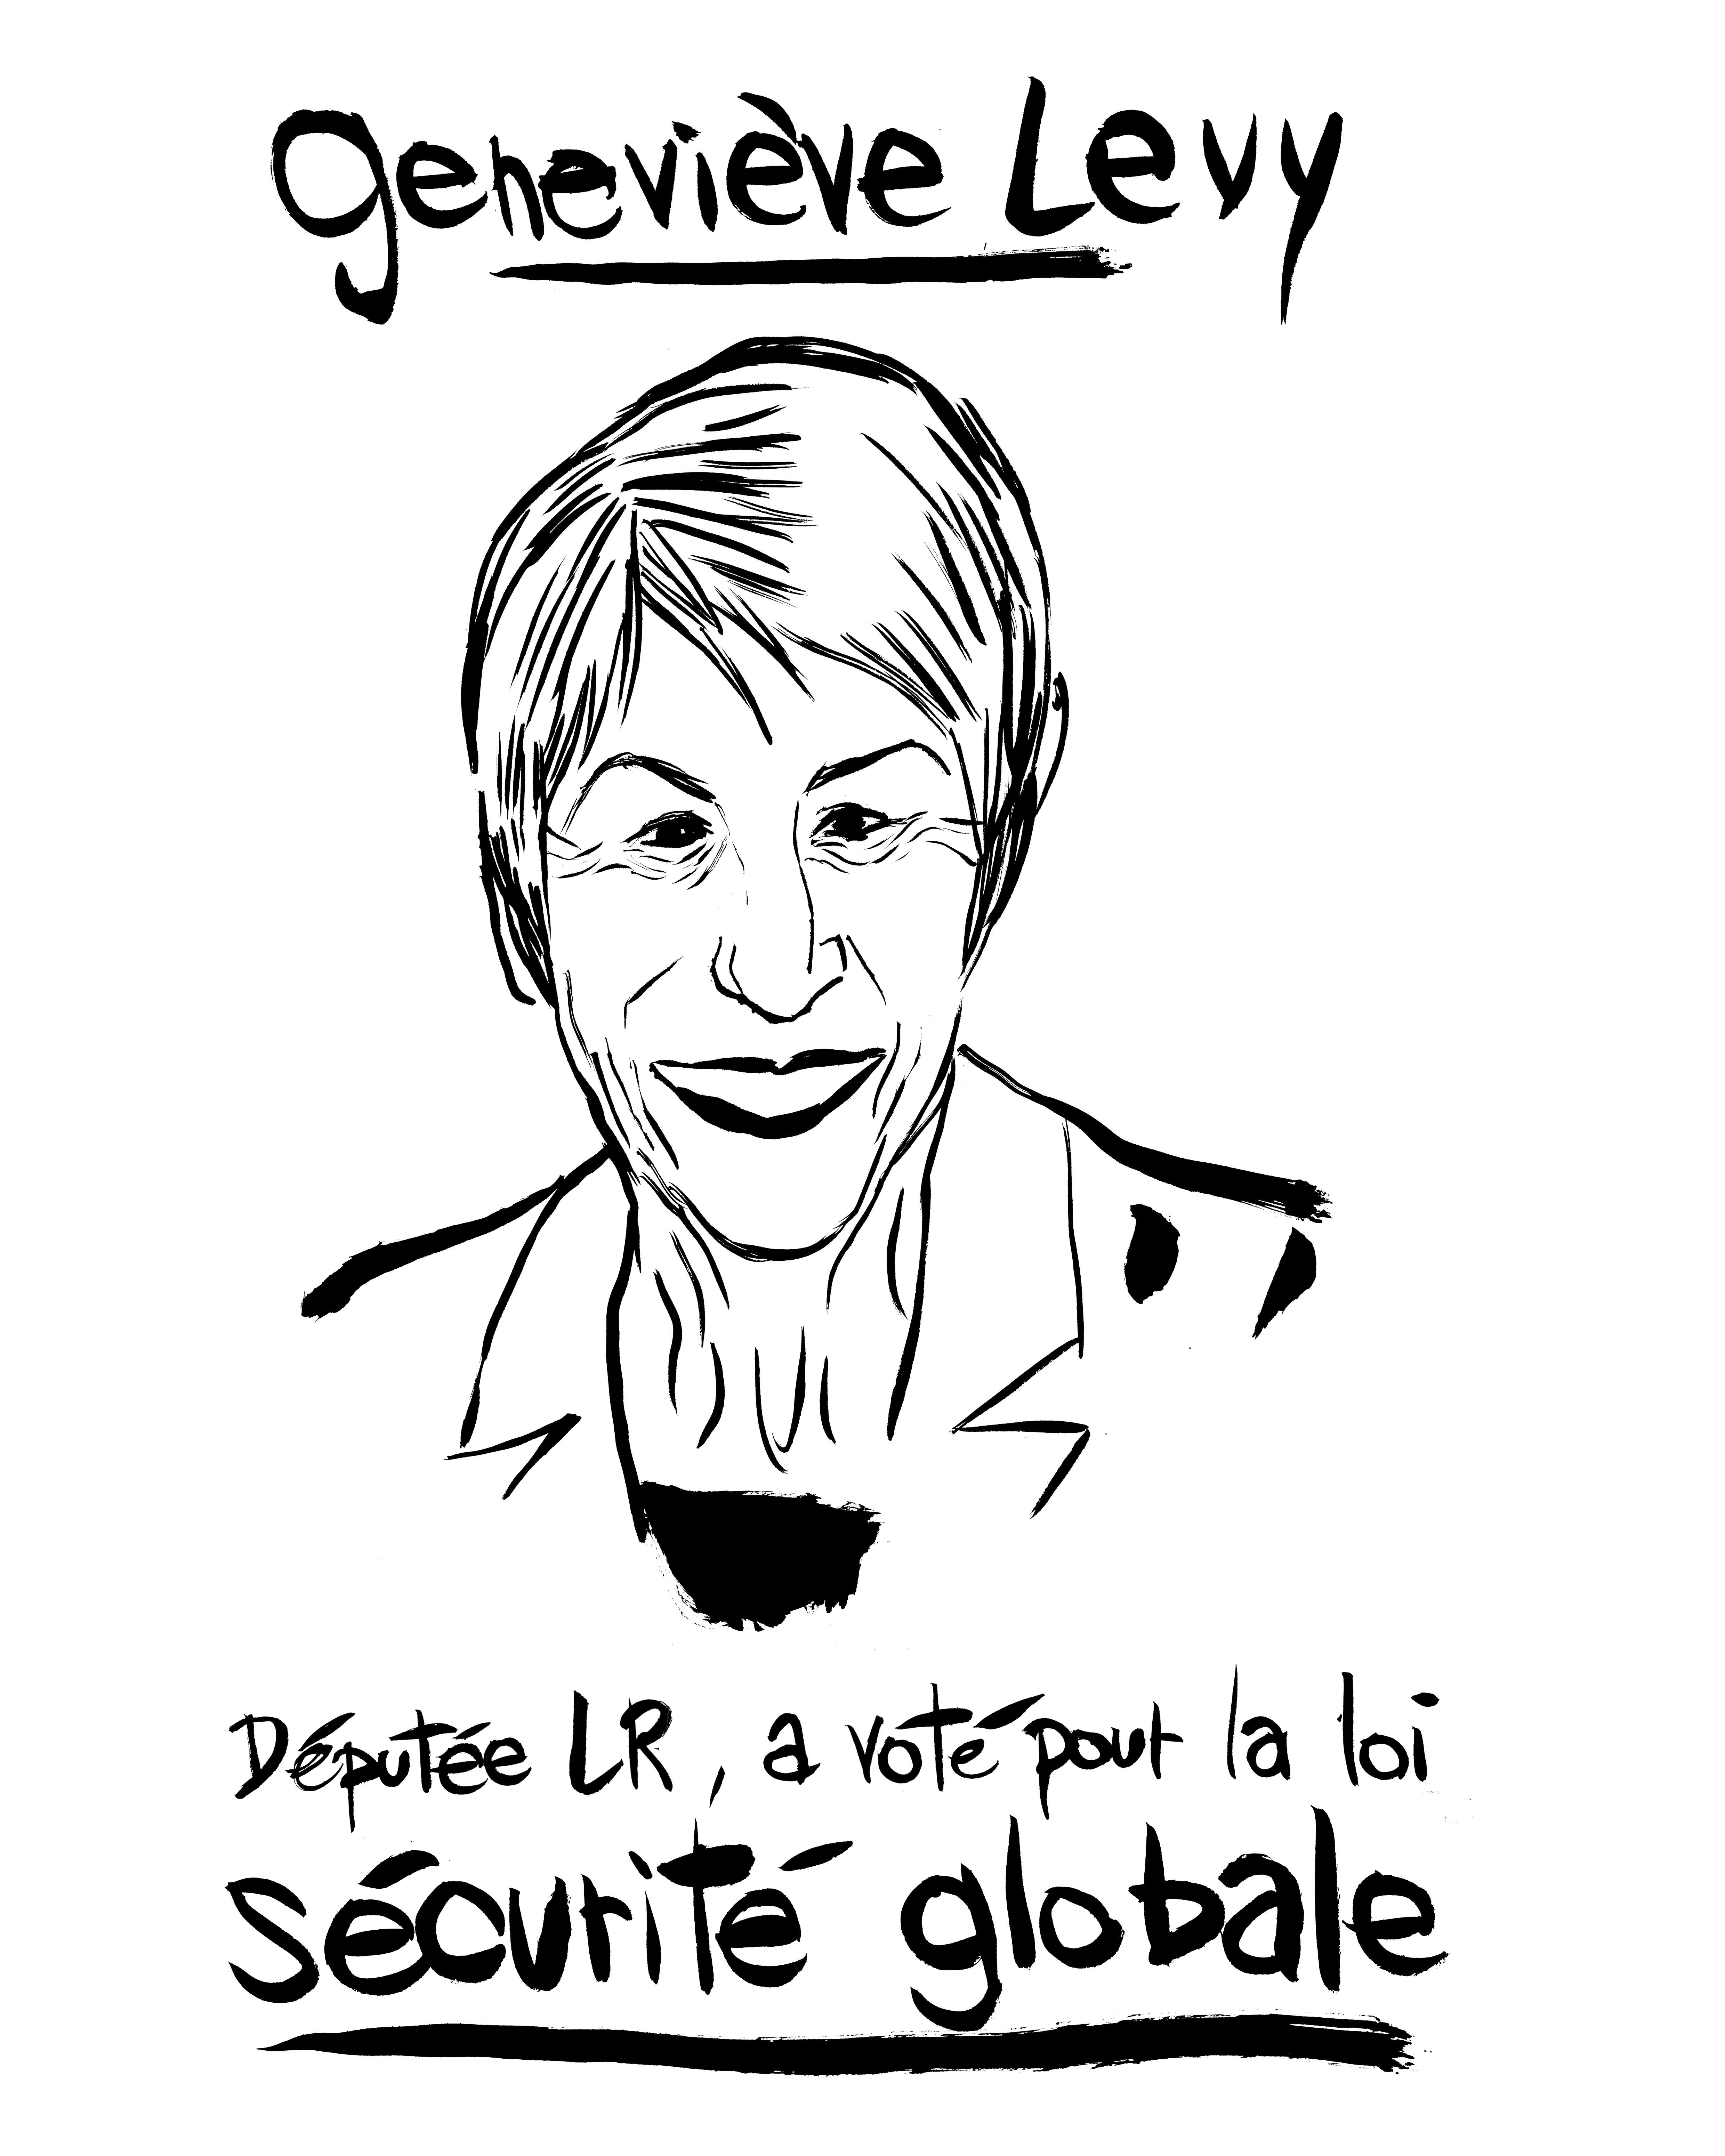 Geneviève Levy
Députée LR, a voté pour la loi
sécurité globale